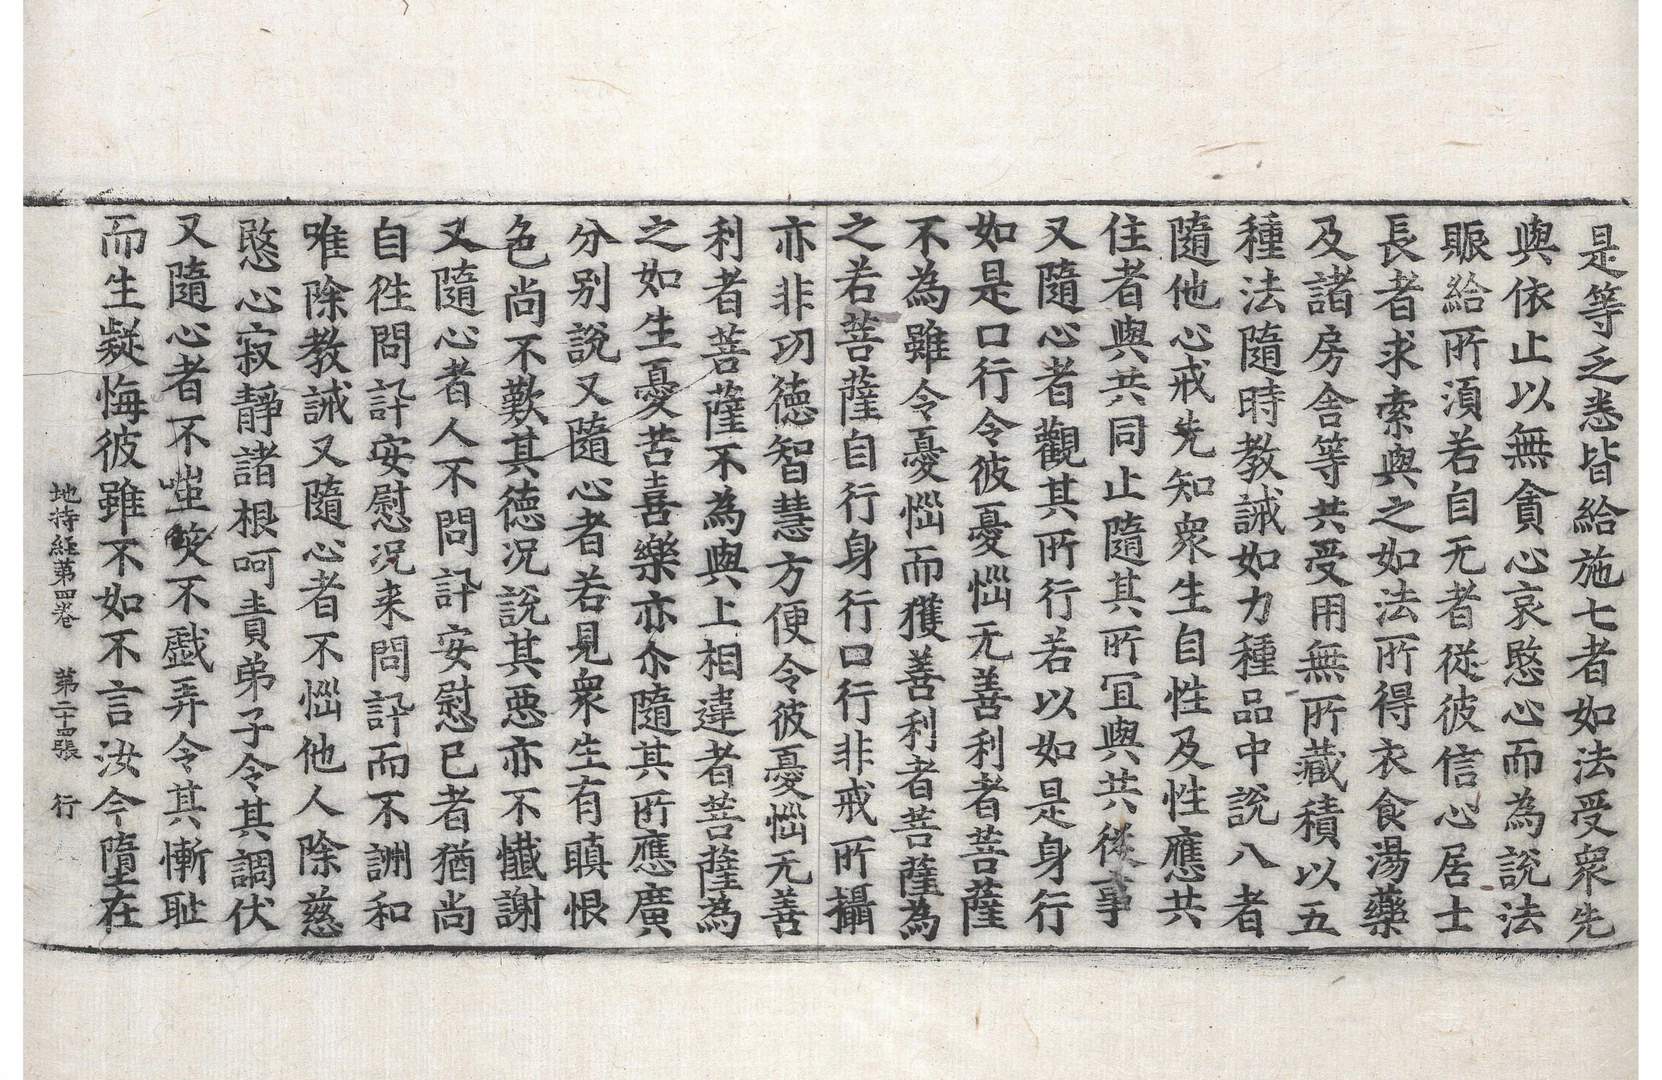 是等之悉皆給施七者如法受衆先
與依止以無貪心哀愍心而為說法
賑給所湏若自无者從彼信心居士
長者求索與之如法所得衣食湯藥
及諸房舍等共受用無所藏積以五
種法隨時教誡如力種品中說八者
隨他心戒先知衆生自性及性應共
住者與共同止隨其所冝與共從事
又隨心者觀其所行若以如是身行
如是口行令彼憂惱无善利者菩薩
不為雖令憂惱而獲善利者菩薩為
之若菩薩自行身行口行非戒所攝
亦非功徳智慧方便令彼憂惱无善
利者菩薩不為與上相違者菩薩為
之如生憂苦喜樂亦尒隨其所應廣
分别說又隨心者若見衆生有瞋恨
色尚不歎其德况說其惡亦不懺謝
又隨心者人不問訃安慰已者猶尚
自徃問訃安慰况来問訃而不詶和
唯除教誡又隨心者不惱他人除慈
愍心寂靜諸根呵責弟子令其調伏
又隨心者不㘊笑不戲弄令其慚耻
而生疑悔彼雖不如不言汝今墮在
地持経苐四卷 苐二十四張 行